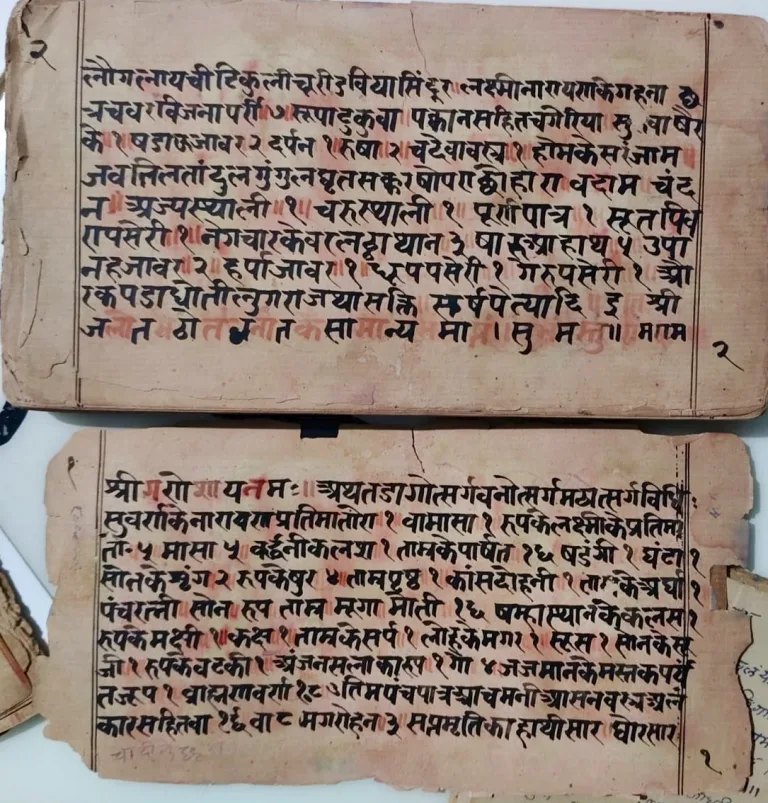 २
लौगलायची टिकुली चूरी ३ विया सिंदुर ॥ लक्ष्मीनारायराकिगहना
त्रचवरविजनापरी ७ रूपादुकुवा पकानसहितचंगेरिया सु वाषैर
के १ षडाऊजावर २ दर्पन १ रुषा २ चदेवावस्त्र १ होमकेसरंजाम
जवतिलतांदुलगुंगुलघृतसक्करषोपराछोहारा वदाम चंद
न अज्यस्थाली १ चरुस्थाली १ पूर्रापात्र १ सूतपिव
रापसेरी १ नगचारकेवर थान ३ षारुआहाथ ५ उपा
नहजावर २ हर्पाजावर १ धूपपसेरी १ गेरुपसेरी १ औ
रकपडाधोतीलुगराजथासक्ति सर्षपेत्यादि इ श्री
जलातठोतवनातकसामान्य मा । सुमस्तु ॥ मगम
२
श्रीगरोशायनमः ॥ अथतडागोत्सर्गवनोत्सर्गमठोत्सर्गविधिः
सुवर्राकेनारायराप्रतिमातोरा १ वामासा १ रुपकेलक्ष्मीकप्रतिमा
तो ५ मासा ५ वर्द्धनीकलश १ ताम्रकेपार्षत १६ षडंगी १ घंटा १
सोनकेशृंग २ रुपकेषुर ४ ताम्रपृष्ठ १ कांसदोहनी १ तारकेअर्घा १
पंचरत्नी सोन रुप ताम्र मूगा मोती १६ ब्रम्हास्थानकेकलस १
रुपकेमक्षी १ कक्ष १ ताम्रकेसर्प १ लोहकेमगर १ सूस १ सोनकेसू
र्जा १ रुपकेवटकी १ अंजनसलाकारुप १ गौ ४ जजमानकेमस्तकपर्य
तजूप १ ब्राह्मरावर्रा १८ पंचपात्रआचमनीआसनवस्त्रअलं
कारसहितवा १६ वा ८ मगरोहन ३ सप्तमृतिकाहाथीसार घोरसार
१